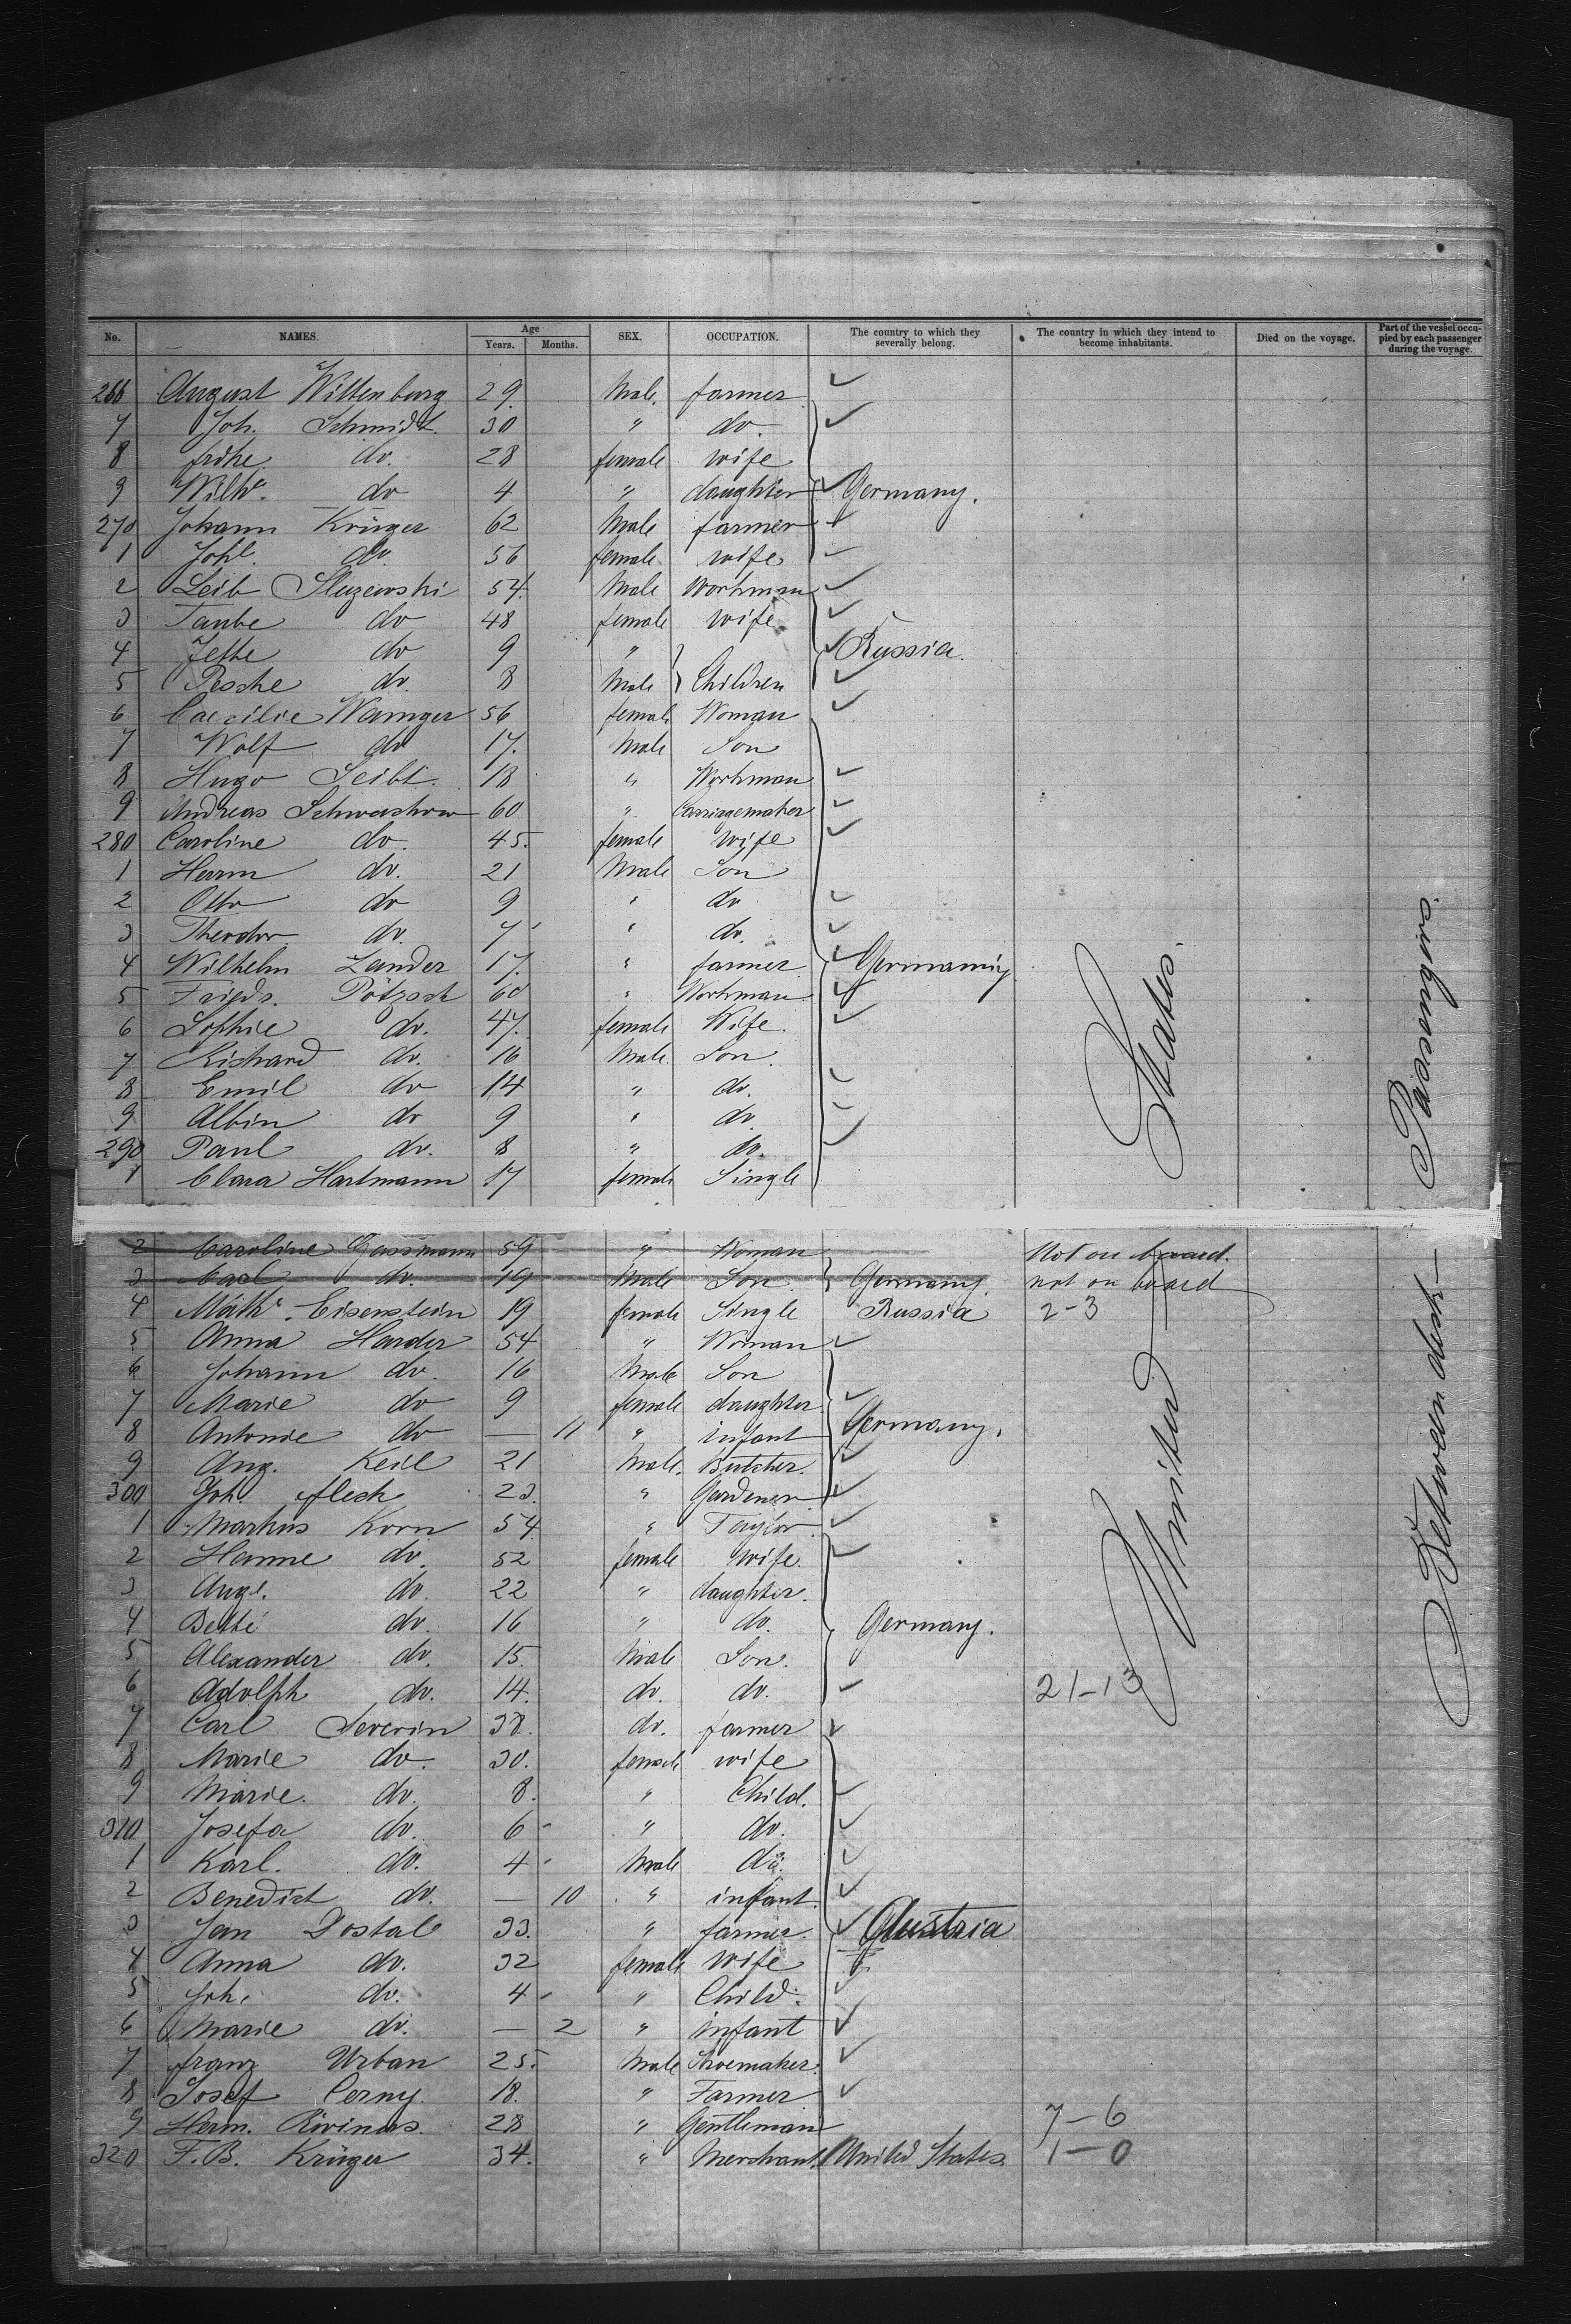 No. NAMES. Age Years. Months. SEX. OCCUPATION. The country to which they severally belong. The country in which they intend to become inhabitants. Died on the voyage. Part of the vessel occupied by each passenger during the voyage.
266 August Wittenburg 29 Male farmer
7 Joh. Schmidt 30 " do.
8 frike do. 28 female wife
9 Wilhe. do 4 " daughter Germany.
270 Johann Krüger 62 Male farmer
1 Johe. do. 56 female wife
2 Leib Sluzewski 54. Male Workman
3 Taube do 48 female wife
4 Jette do 9 " Russia.
5 Pesche do. 8 Male Children
6 Caecilie Wamger 56 female Woman
7 Wolf do 17. Male Son
8 Hugo Seibt. 18 " Workman
9 Andreas Schwashow 60 " Carriagemaker
280 Caroline do. 45. female wife
1 Herm do. 21 Male Son
2 Otto do 9 " do
3 Theodor do. 7 " do.
4 Wilhelm Zander 17. " farmer Germaniy
5 Friedr. Pötzsch 60 " Workman
6 Sophie do. 47. female Wife.
7 Richard do. 16 Male Son.
8 Emil do 14 " do.
9 Albin do 9 " do
290 Paul do. 8 " do.
1 Clara Hartmann 17 female Single
2 Caroline Gassmann 59 " Woman Not on board.
3 Carl do. 19 Male Son. Germany. not on board
4 Mathe. Eisenstein 19 female Single Russia 2-3
5 Anna Harder 54 " Woman
6 Johann do. 16 Male Son
7 Marie do 9 female daughter
8 Antonie do — 11 " infant Germany.
9 Aug. Keil 21 Male. Butcher.
300 Joh. flesh 23. " Gardener
1 Markus Korn 54 " Taylor
2 Hanne do. 52 female wife.
3 Auge. do. 22 " daughter.
4 Bette do. 16 " do. Germany.
5 Alexander do. 15. Male Son.
6 Adolph do. 14. do. do. 21-13
7 Carl Severin 38. do. farmer
8 Marie do. 30. female wife
9 Marie. do. 8. " Child.
310 Josefa do. 6 " do.
1 Karl. do. 4 Male do.
2 Benedict do. — 10 " infant.
3 Jan Dostal 33. " farmer. Austria
4 Anna do. 32 female wife
5 Joh. do. 4 " Child.
6 Marie do. — 2 " infant
7 franz Urban 25. Male Shoemaker.
8 Josef Cerny. 18. " Farmer
9 Herm. Rivinus. 28 " Gentleman 7-6
320 F. B. Krüger 34. " Merchant. United States. 1-0
United States.
Between deck Passengers.